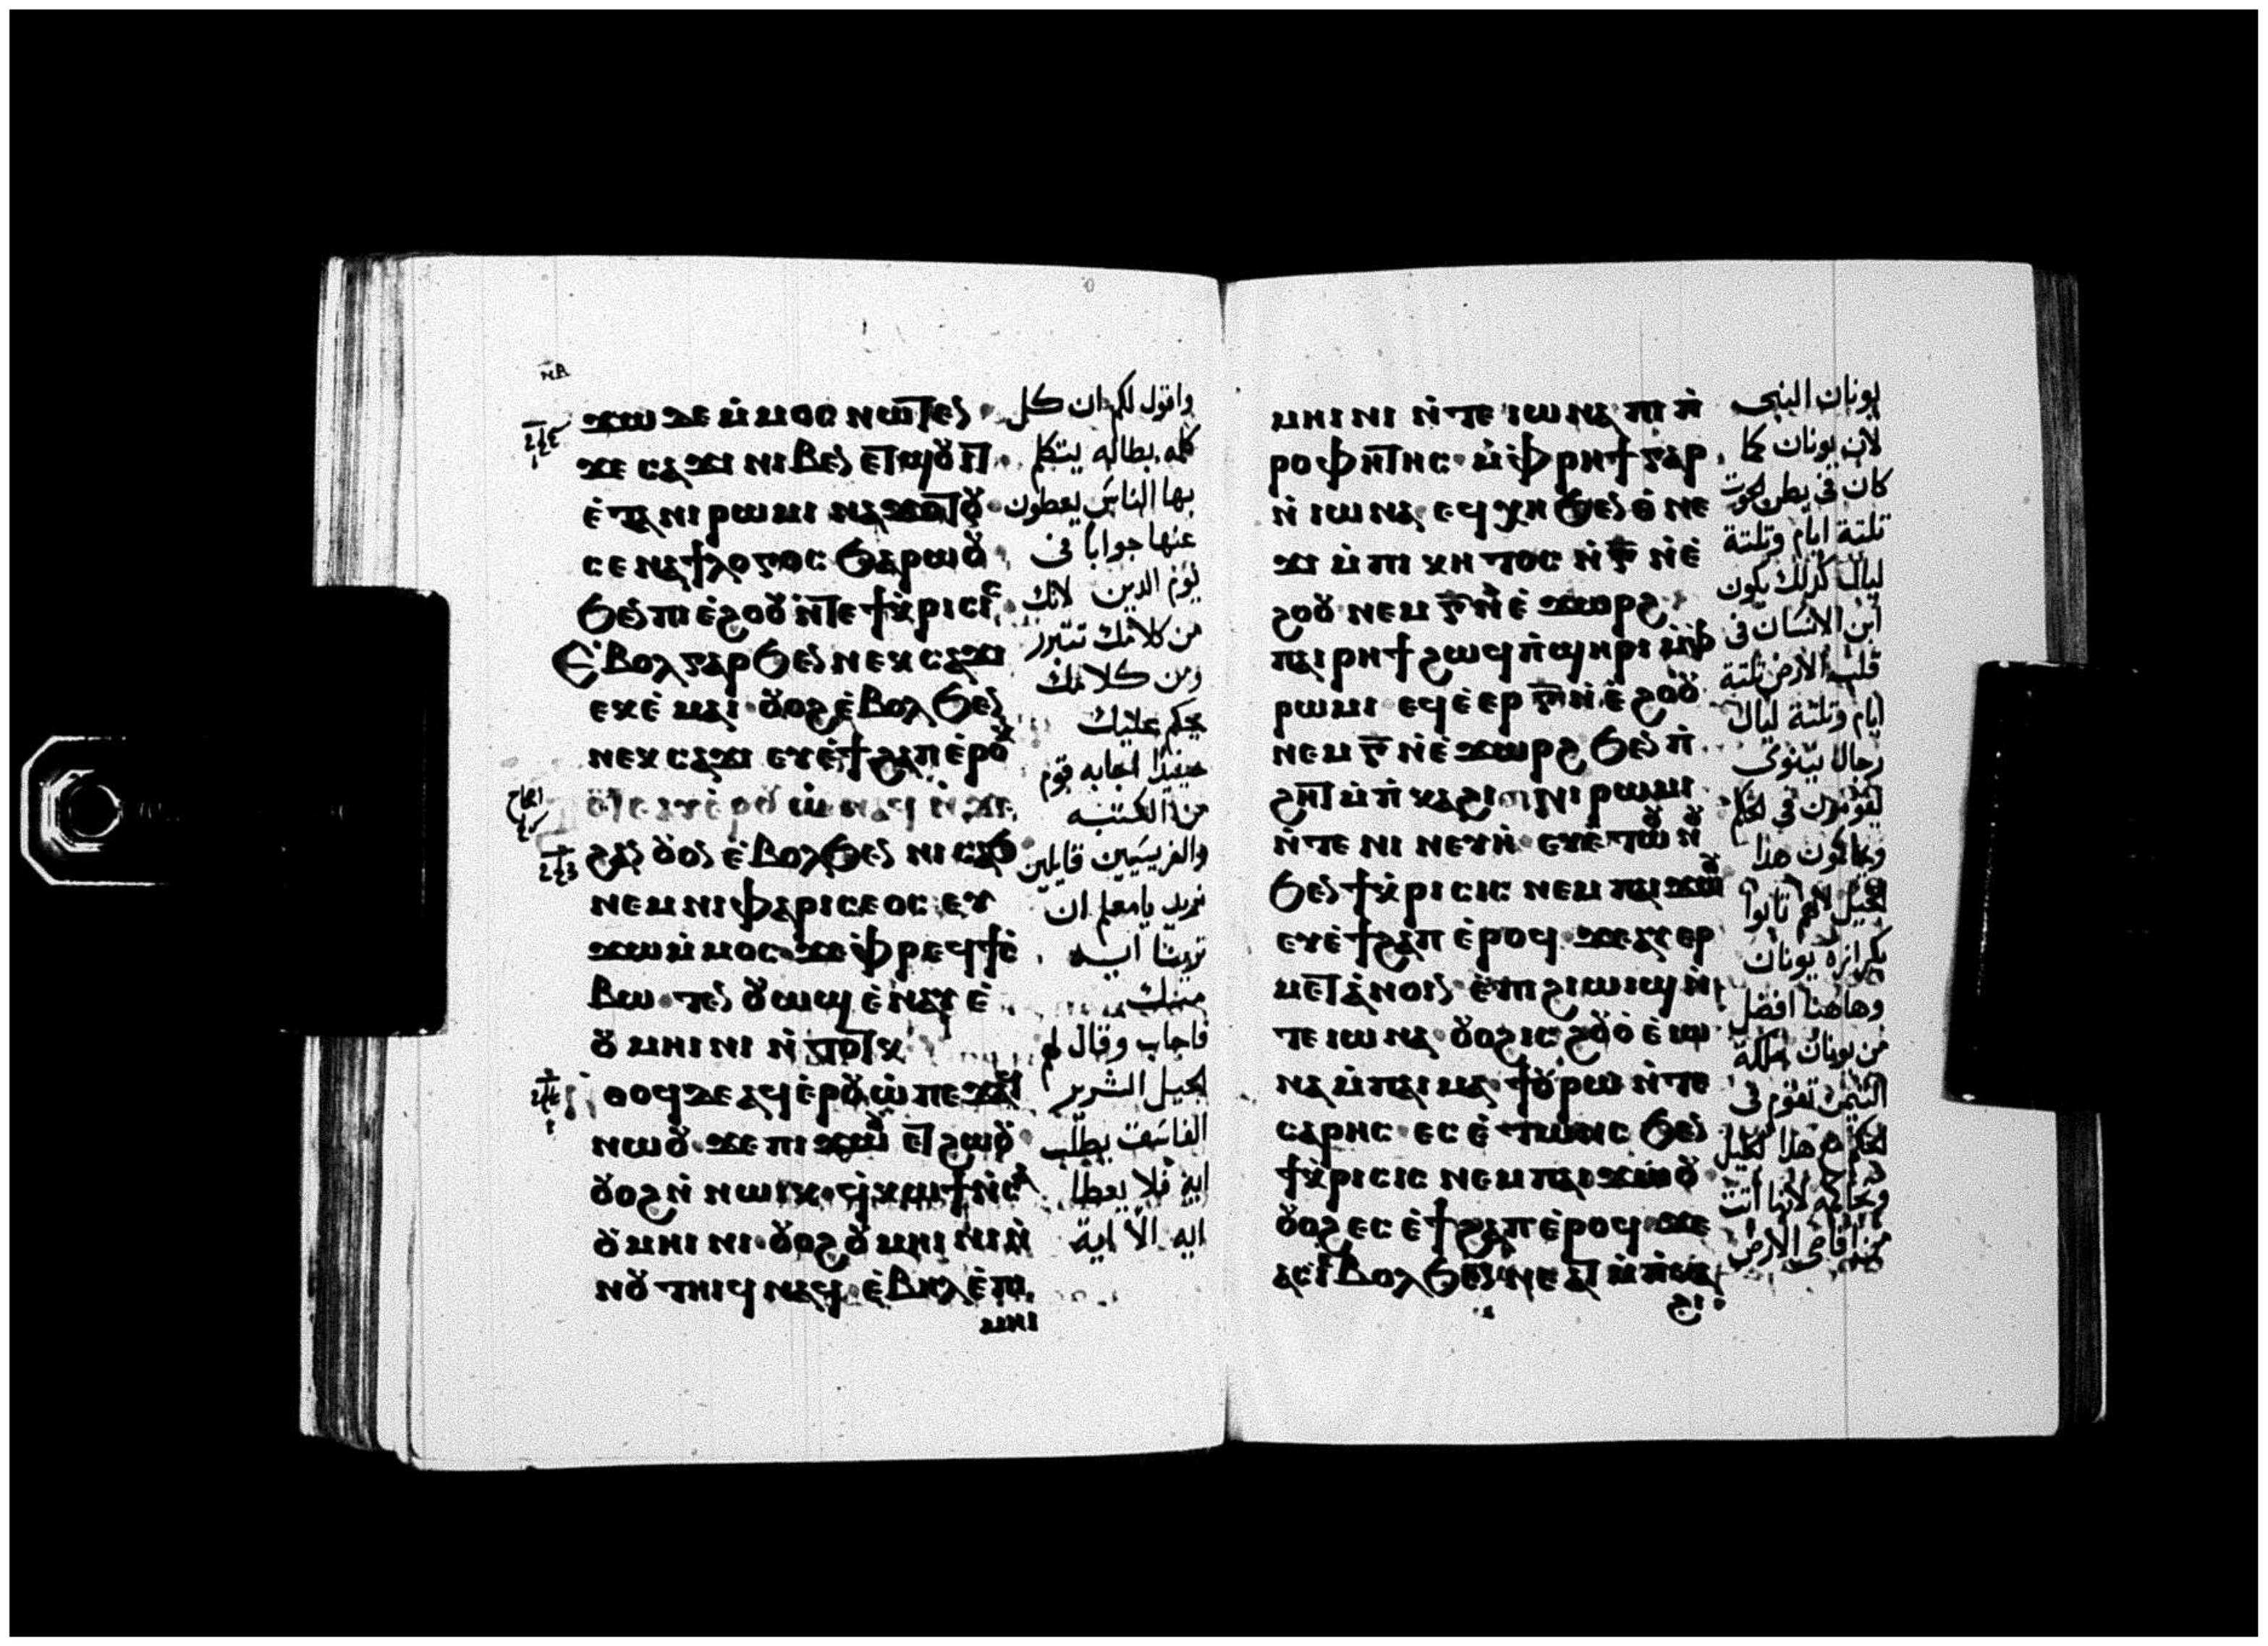 ⲛⲃ
ϫⲱ ⲇⲉ ⲙ̇ⲙⲟⲥ ⲛⲱⲧⲉⲛ
ϫⲉ ⲥⲁϫⲓ ⲛⲓⲃⲉⲛ ⲉⲧϣⲟⲩⲓⲧ
ⲉ̇ⲧⲉ ⲛⲓⲣⲱⲙⲓ ⲛⲁϫⲟⲧⲟⲩ
ⲥⲉⲛⲁϯⲗⲟⲅⲟⲥ ϧⲁⲣⲱⲟⲩ
ϧⲉⲛ ⲡⲓⲉ̇ϩⲟⲟⲩ ⲛ̇ⲧⲉ ϯⲕ̇ⲣⲓⲥⲓⲥ
ⲉ̇ⲃⲟⲗ ⲅⲁⲣ ϧⲉⲛ ⲛⲉⲕⲥⲁϫⲓ
ⲉⲕⲉ̇ⲙⲁⲓ ⲟⲩⲟϩ ⲉ̇ⲃⲟⲗ ϧⲉⲛ
ⲛⲉⲕⲥⲁϫⲓ ⲉⲩⲉ̇ϯϩⲁⲡ ⲉ̇ⲣⲟⲕ
ϩⲁⲛⲟⲩⲟⲛ ⲉ̇ⲃⲟⲗ ϧⲉⲛ ⲛⲓⲥⲁϧ
ⲛⲉⲙ ⲛⲓⲫⲁⲣⲓⲥⲉⲟⲥ ⲉⲩ
ϫⲱ ⲙ̇ⲙⲟⲥ ϫⲉ ⲫ̇ⲣⲉϥϯⲥ̇
ⲃⲱ ⲧⲉⲛⲟⲩⲱϣ ⲉ̇ⲛⲁⲩ ⲉ̇
ⲟⲩⲙⲏⲓⲛⲓ ⲛ̇ⲧⲟⲧⲕ
ⲛ̇ⲑⲟϥ ⲇⲉ ⲁϥⲉ̇ⲣⲟⲩⲱ̇ ⲡⲉϫⲁϥ
ⲛⲱⲟⲩ ϫⲉ ⲡⲓϫⲱⲟⲩ ⲉⲧϩⲱⲟⲩ
ⲟⲩⲟϩ ⲛ̇ⲛⲱⲓⲕ ϥ̇ⲕⲱϯ ⲛ̇ⲥⲁ
ⲟⲩⲙⲏⲓⲛⲓ ⲟⲩⲟϩ ⲟⲩⲙⲏⲓⲛⲓ ⲛ̇
ⲛⲟⲩⲧⲏⲓϥ ⲛⲁϥ ⲉ̇ⲃⲏⲗ ⲉ̇ⲡⲓ
ⲙⲏⲓ
واقول لكم ان كل
كلمه بطاله يتكلم
بها الناس يعطون
عنها جوابا فى
يوم الدين لانك
من كلامك تتبرر
ومن كلامك
يحكم عليك
حينيذا اجابه قوم
من الكتبه
والفريسيين قايلين
نريد يامعلم ان
ترينا ايه
منك
فاجاب وقال لهم
الجيل الشرير
الفاسق يطلب
ايه فلا يعطا
ايه الا اية
ⲙⲏⲓⲛⲓ ⲛ̇ⲧⲉ ⲓⲱⲛⲁ ⲡⲓⲡ̇
ⲣⲟⲫⲏⲧⲏⲥ ⲙ̇ⲫ̇ⲣⲏϯ ⲅⲁⲣ
ⲛ̇ⲓⲱⲛⲁ ⲉϥⲭⲏ ϧⲉⲛ ⲑ̇ⲛⲉ
ϫⲓ ⲙ̇ⲡⲓⲕⲏⲧⲟⲥ ⲛ̇ⲅ̅ ⲛ̇ⲉ̇
ϩⲟⲟⲩ ⲛⲉⲙ ⲅ̅ ⲛ̇ⲉ̇ϫⲱⲣϩ
ⲡⲁⲓⲣⲏϯ ϩⲱϥ ⲡ̇ϣⲏⲣⲓ ⲙ̇ⲫ̇
ⲣⲱⲙⲓ ⲉϥⲉ̇ⲉⲣ ⲅ̅ ⲛ̇ⲉ̇ϩⲟⲟⲩ
ⲛⲉⲙ ⲅ̅ ⲛ̇ⲉ̇ϫⲱⲣϩ ϧⲉⲛ ⲡ̇
ϩⲏⲧ ⲙ̇ⲡ̇ⲕⲁϩⲓ ⲛⲓⲣⲱⲙⲓ
ⲛ̇ⲧⲉ ⲛⲓⲛⲉⲩⲏ̇ ⲉⲩⲉ̇ⲧⲱⲟⲩⲛⲟⲩ
ϧⲉⲛ ϯⲕ̇ⲣⲓⲥⲓⲥ ⲛⲉⲙ ⲡⲁⲓϫⲱⲟⲩ
ⲉⲩⲉ̇ϯϩⲁⲡ ⲉ̇ⲣⲟϥ ϫⲉ ⲁⲩⲉⲣ
ⲙⲉⲧⲁ̇ⲛⲟⲓⲛ ⲉ̇ⲡⲓϩⲓⲱⲓϣ ⲛ̇
ⲧⲉ ⲓⲱⲛⲁ ⲟⲩⲟϩ ⲓⲥ ϩⲟⲩⲟ̇ ⲉ̇ⲓⲱ
ⲛⲁ ⲙ̇ⲡⲁⲓⲙⲁ ϯⲟⲩⲣⲱ ⲛ̇ⲧⲉ
ⲥⲁⲣⲏⲥ ⲉⲥⲉ̇ⲧⲱⲛⲥ ϧⲉⲛ
ϯⲕ̇ⲣⲓⲥⲓⲥ ⲛⲉⲙ ⲡⲁⲓϫⲱⲟⲩ
ⲟⲩⲟϩ ⲉⲥⲉ̇ϯϩⲁⲡ ⲉ̇ⲣⲟϥ ϫⲉ
ⲁⲥⲓ̇ ⲉ̇ⲃⲟⲗ ϧⲉⲛ
يونان النبى
لان يونان كما
كان فى بطن الحوت
تلتة ايام وتلتة
ليال كذلك يكون
ابن الانسان فى
قلب الارض تلتة
ايام وتلتة ليال
رجال نينوى
يقومون فى الحكم
ويحاكمون هذا
الجيل لانهم تابوا
بكرازة يونان
وهاهنا افضل
من يونان ملكة
التيمن تقوم فى
الحكم مع هذا الجيل
وتحاكمه لانها اتت
من اقاصى الارض